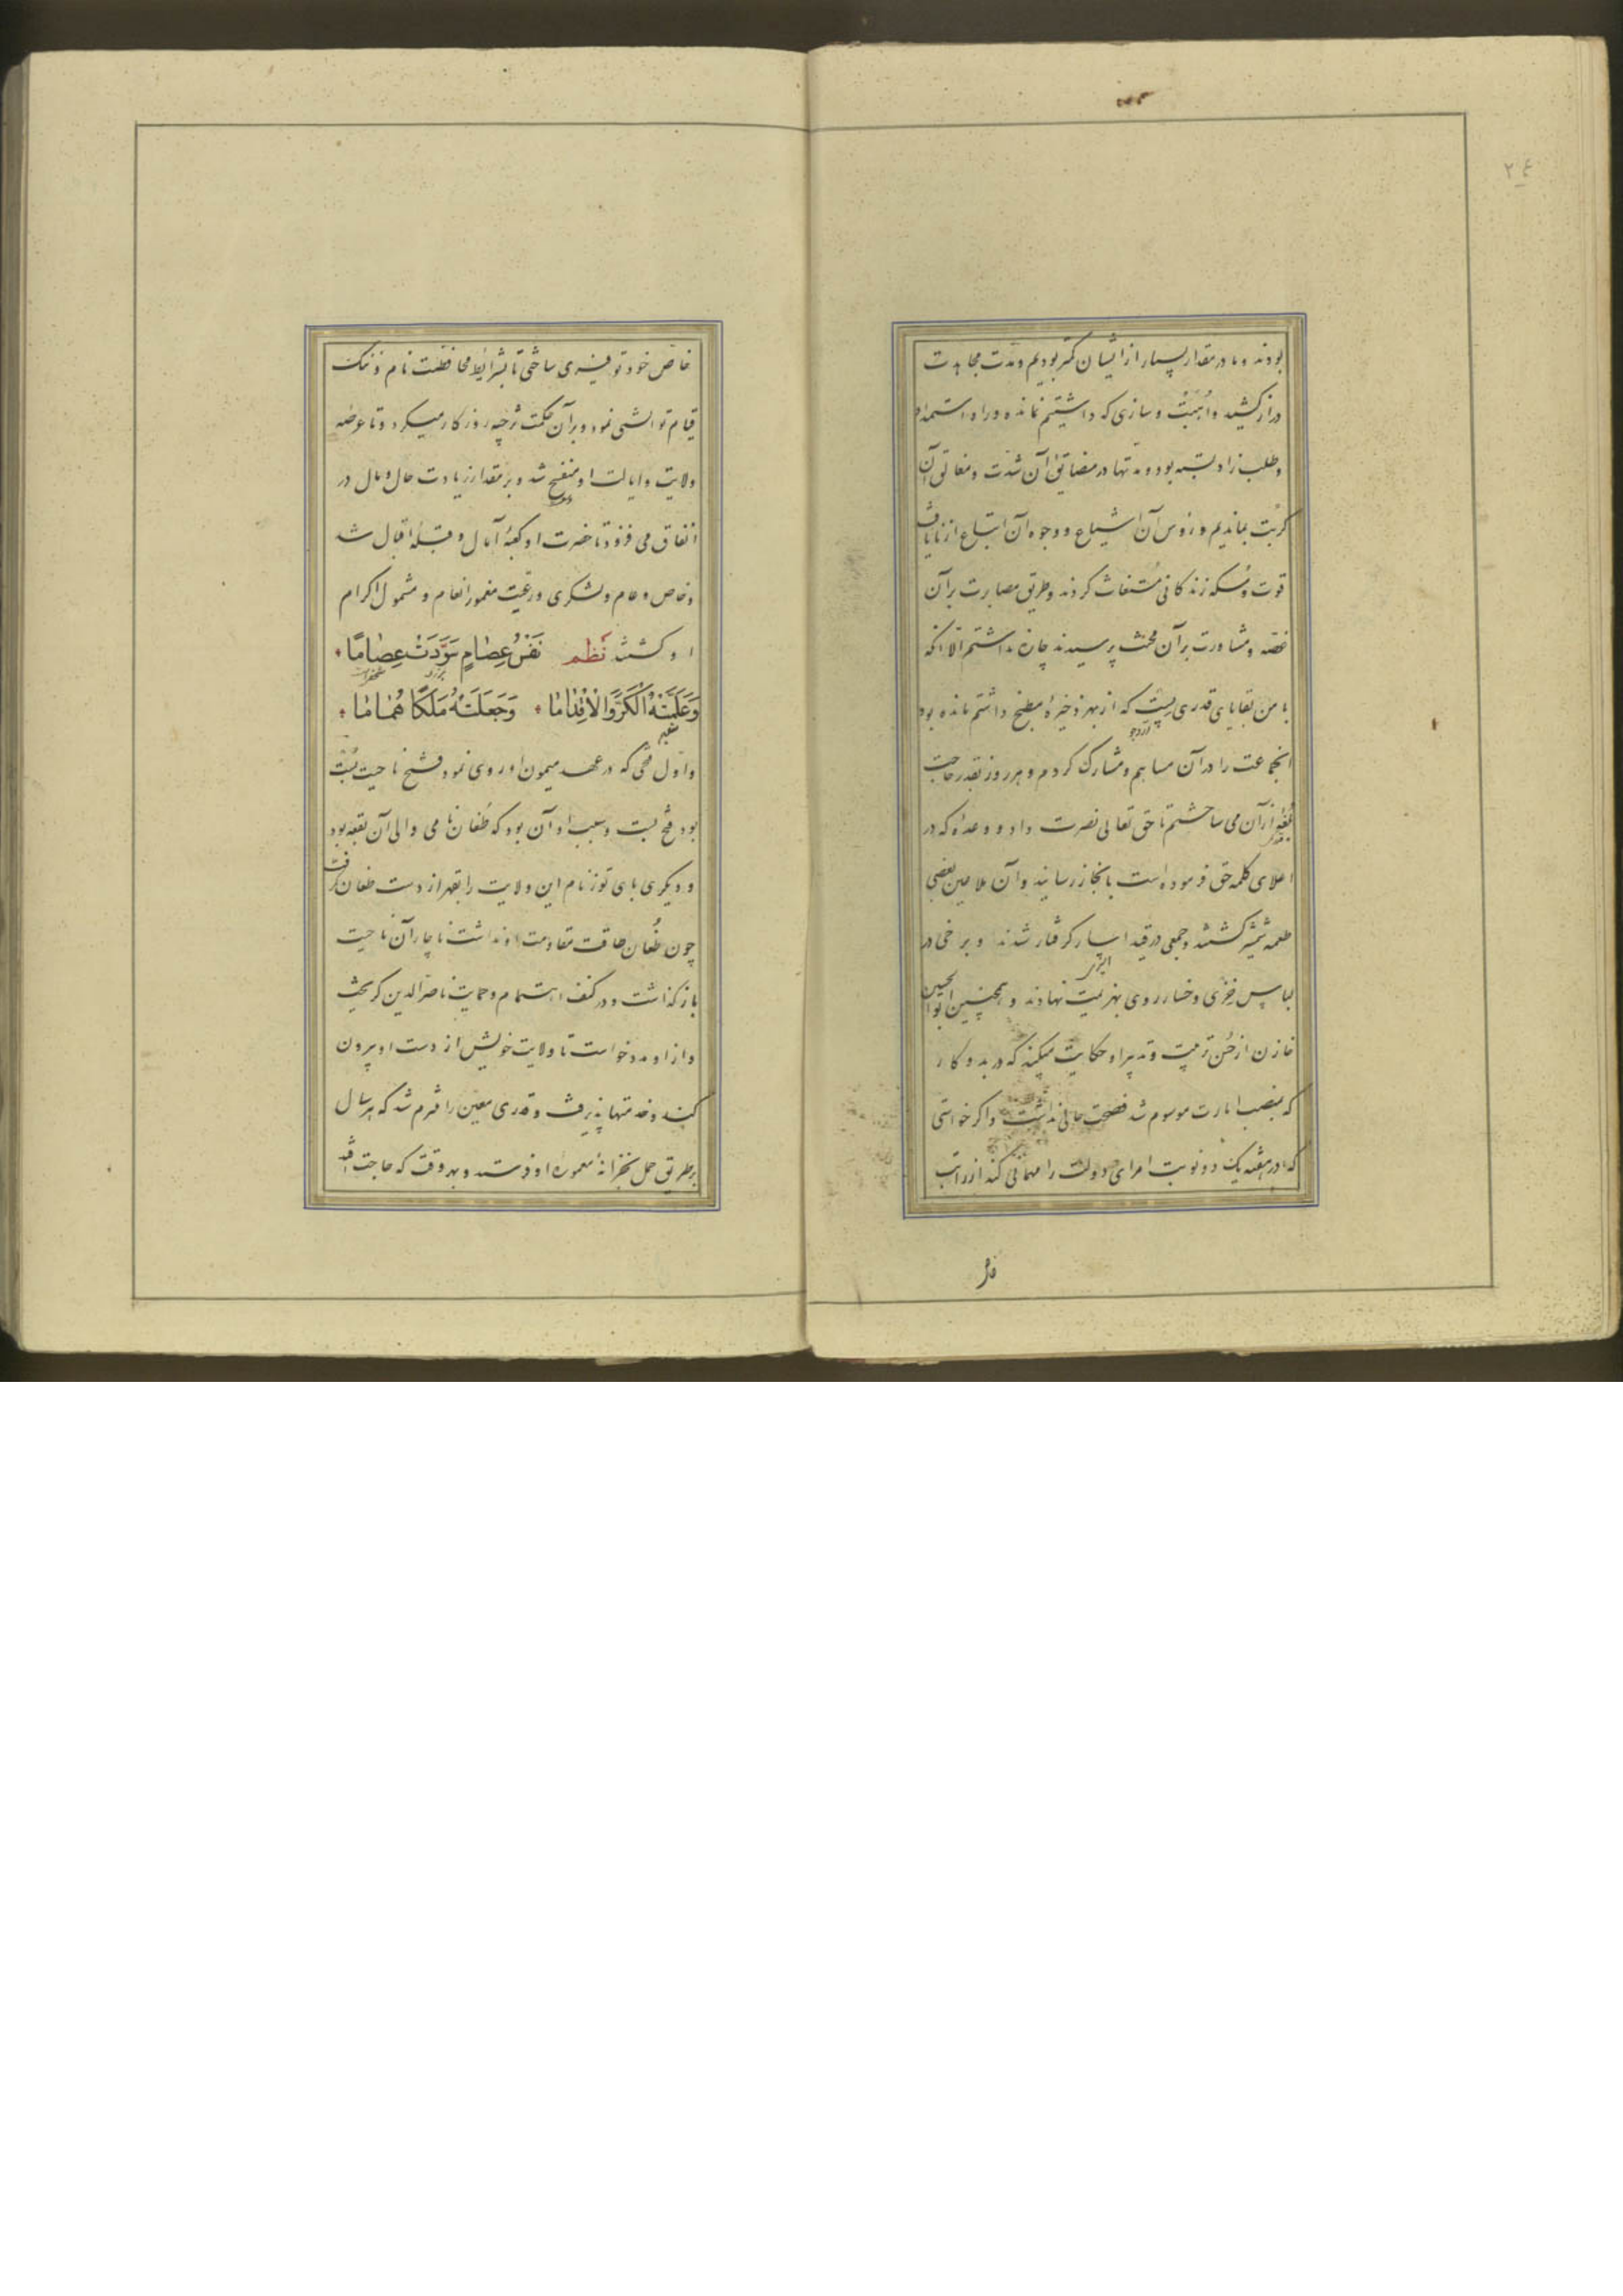 ٢٤
بودند و ما در مقدار بسیار از ایشان کمتر بودیم و مدت مجاهدت
دراز کشید و اُهبَتْ و سازی که داشتیم نمانده و راه استمداد
و طلب زاد بسته بود و مدتها در مضایق آن شدت و مغالق آن
کربت بماندیم و رؤس آن اشیاع و وجوه آن اتباع از نایافت
قوت و مُسکه زندکانی استغاثت کردند و طریق مصابرت بر آن
غصه و مشاورت بر آن محنت پرسیدند چاره نداشتم الّا آنکه
با من بقایای قدری پست که از بهر ذخیرهٔ مطبخ داشتم مانده بود
آرد جو
آنجماعت را در آن مساهم و مشارک کردم و هر روز بقدر حاجت
از آن می ساختم تا حق تعالی نصرت داد و وعداه که در
اعلای کلمه حق فرموده است بانجاز رسانید و آن ملاعین بعضی
طعمه شمشیر کشتند و جمعی در قید اسار کرفتار شدند و برخی در
لباس خِزی و خسار روی بهزیمت نهادند و همچنین ابوالحسین
خازن از حُسن ترتیب و تدبیر او حکایت میکند که در بدو کار
که بمنصب امارت موسوم شد فسحت حالی نداشت و اکر خواستی
که در هفته یک دو نوبت امرای دولت را مهمانی کند از راتب
خاص خود توفیری ساختی تا بشرایط محافظت نام و ننک
قیام توانستی نمود و بر آن حکمت تزجیه روزکار میکرد و تا عرصه
ولایت و ایالت او منفسح شد و بر مقدار زیادت حال و مال در
انفاق می فزود تا حضرت او کعبهٔ آمال و قبلهٔ اقبال شد
و خاص و عام و لشکری و رعیت مغمور انعام و مشمول اکرام
او کشتند نَظم نَفْسُ عِصٰامٍ سَوَّدَتْ عِصٰامًا
وَعَلَّمَتْهُ الْكَرَّ وَالْاِقْدٰامٰا وَجَعَلَتْهُ مَلَكًا هُمٰامٰا
و اوّل فتحی که در عهد میمون او روی نمود فتح ناحیت بُست
بود فتح بست و سبب او آن بود که طُغان نامی والی آن بقعه بود
و دیکری بای توز نام این ولایت را بقهر از دست طغان کرفت
چون طُغان طاقت مقاومت او نداشت ناچار آن ناحیت
باز کذاشت و در کنف اهتمام و حمایت ناصرالدین کریخت
و از او مدد خواست تا ولایت خویش از دست او بیرون
کند و خدمتها پذیرفت و قدری معین را ملتزم شد که هر سال
بر طریق حمل بخزانهٔ معموره او فرستد و بهر وقت که حاجت افتد